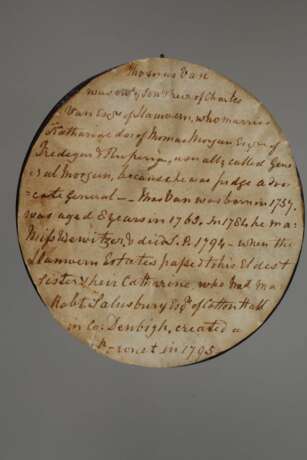 Thomas Van
was only Son & Heir of Charles
Van Esqr. of Llanwern, who married
Katharine dor. of Thomas Morgan Esqr. of
Tredegar & Ruperra, usually called Gene
=ral Morgan, because he was Judge Advo-
=cate General — Mr. Van was born in 1757.
was aged 8 years in 1763. In 1784 he ma.
Miss Dewitzer, & died S.P. 1794 - when the
Llanwern Estates pass'd to his Eldest
Sister & heir Catherine who had ma
Robt. Salusbury Esqr. of Cotton Hall
in Co. Denbigh, created a
Baronet in 1795